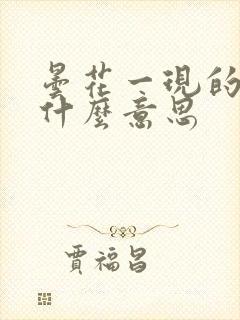 曇花一現的
什麼意思
賈福昌